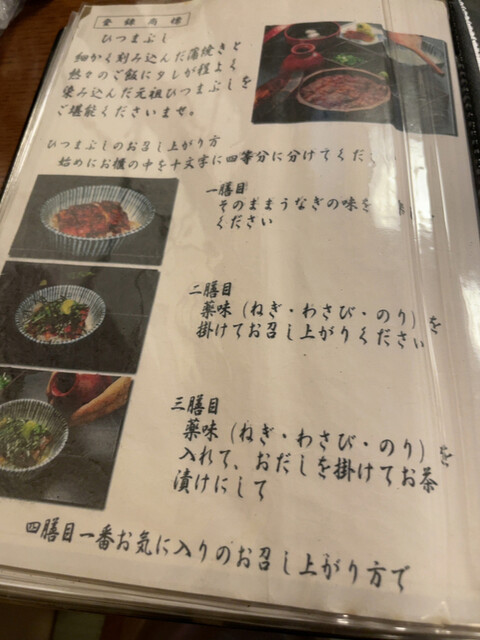 登録商標
ひつまぶし
細かく刻み込んだ蒲焼きと
熱々のご飯にタレが程よく
染み込んだ元祖ひつまぶしを
ご堪能くださいませ。
ひつまぶしのお召し上がり方
始めにお櫃の中を十文字に四等分に分けてくだ
一膳目
そのままうなぎの味を
ください
二膳目
薬味(ねぎ・わさび・のり)を
掛けてお召し上がりください
三膳目
薬味(ねぎ・わさび・のり)を
入れて、おだしを掛けてお茶
漬けにして
四膳目一番お気に入りのお召し上がり方で